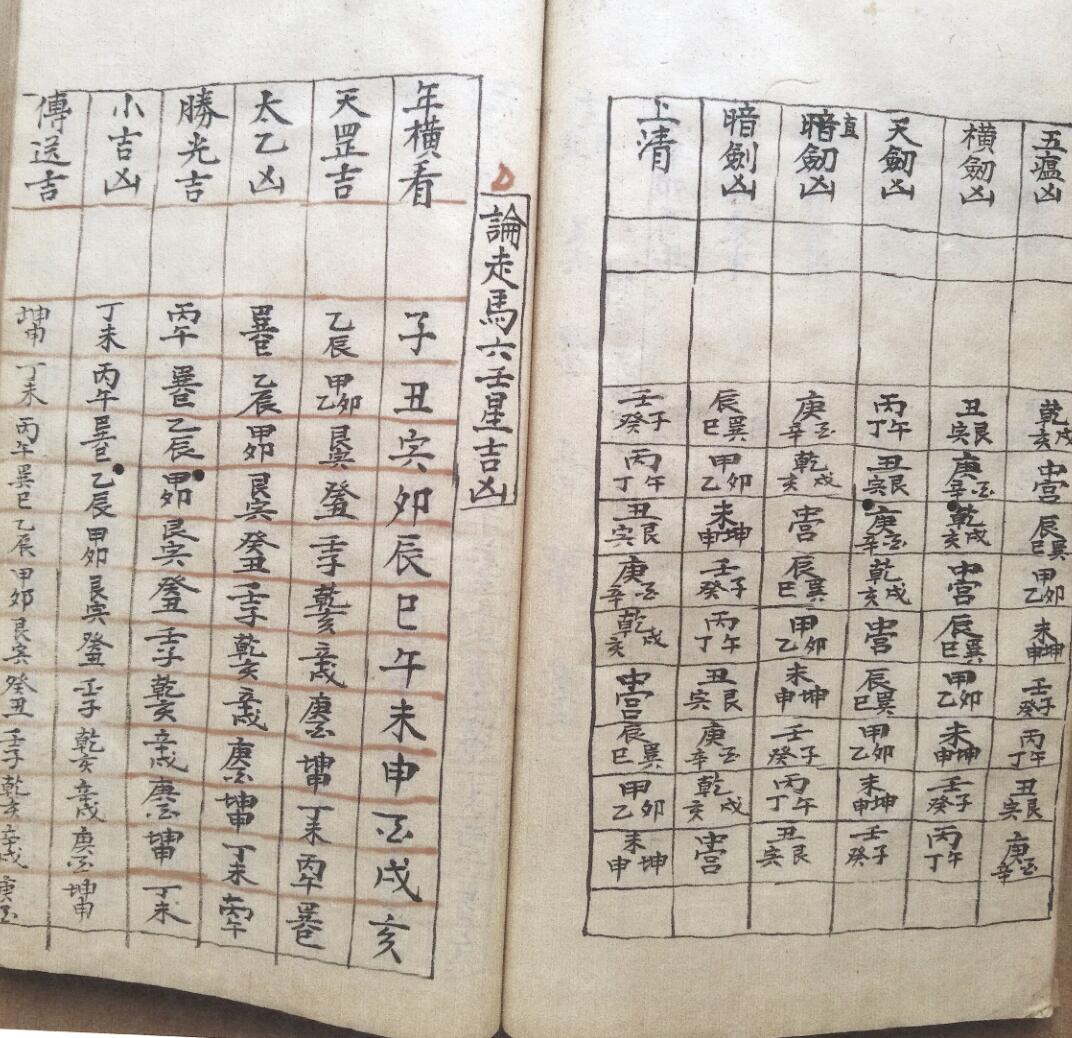 五瘟凶 乾戌亥 中宮 辰巽巳 甲卯乙 未坤申 壬子癸 丙午丁 丑艮寅 庚酉辛
横劒凶 丑艮寅 庚酉辛 乾戌亥 中宮 辰巽巳 甲卯乙 未坤申 壬子癸 丙午丁
天劒凶 丙午丁 丑艮寅 庚酉辛 乾戌亥 中宮 辰巽巳 甲卯乙 未坤申 壬子癸
暗直劒凶 庚酉辛 乾戌亥 中宮 辰巽巳 甲卯乙 未坤申 壬子癸 丙午丁 丑艮寅
暗劍凶 辰巽巳 甲卯乙 未坤申 壬子癸 丙午丁 丑艮寅 庚酉辛 乾戌亥 中宮
上清 壬子癸 丙午丁 丑艮寅 庚酉辛 乾戌亥 中宮 辰巽巳 甲卯乙 未坤申
論走馬六壬星吉凶
年横看 子 丑 寅 卯 辰 巳 午 未 申 酉 戌 亥
天罡吉 乙辰 甲卯乙 艮寅 癸丑 壬子 乾亥 辛戌 庚酉 坤申 丁未 丙午 巽巳
太乙凶 巽巳 乙辰 甲卯 艮寅 癸丑 壬子 乾亥 辛戌 庚酉 坤申 丁未 丙午
勝光吉 丙午 巽巳 乙辰 甲卯 艮寅 癸丑 壬子 乾亥 辛戌 庚酉 坤申 丁未
小吉凶 丁未 丙午 巽巳 乙辰 甲卯 艮寅 癸丑 壬子 乾亥 辛戌 庚酉 坤申
傳送吉 坤申 丁未 丙午 巽巳 乙辰 甲卯 艮寅 癸丑 壬子 乾亥 辛戌 庚酉